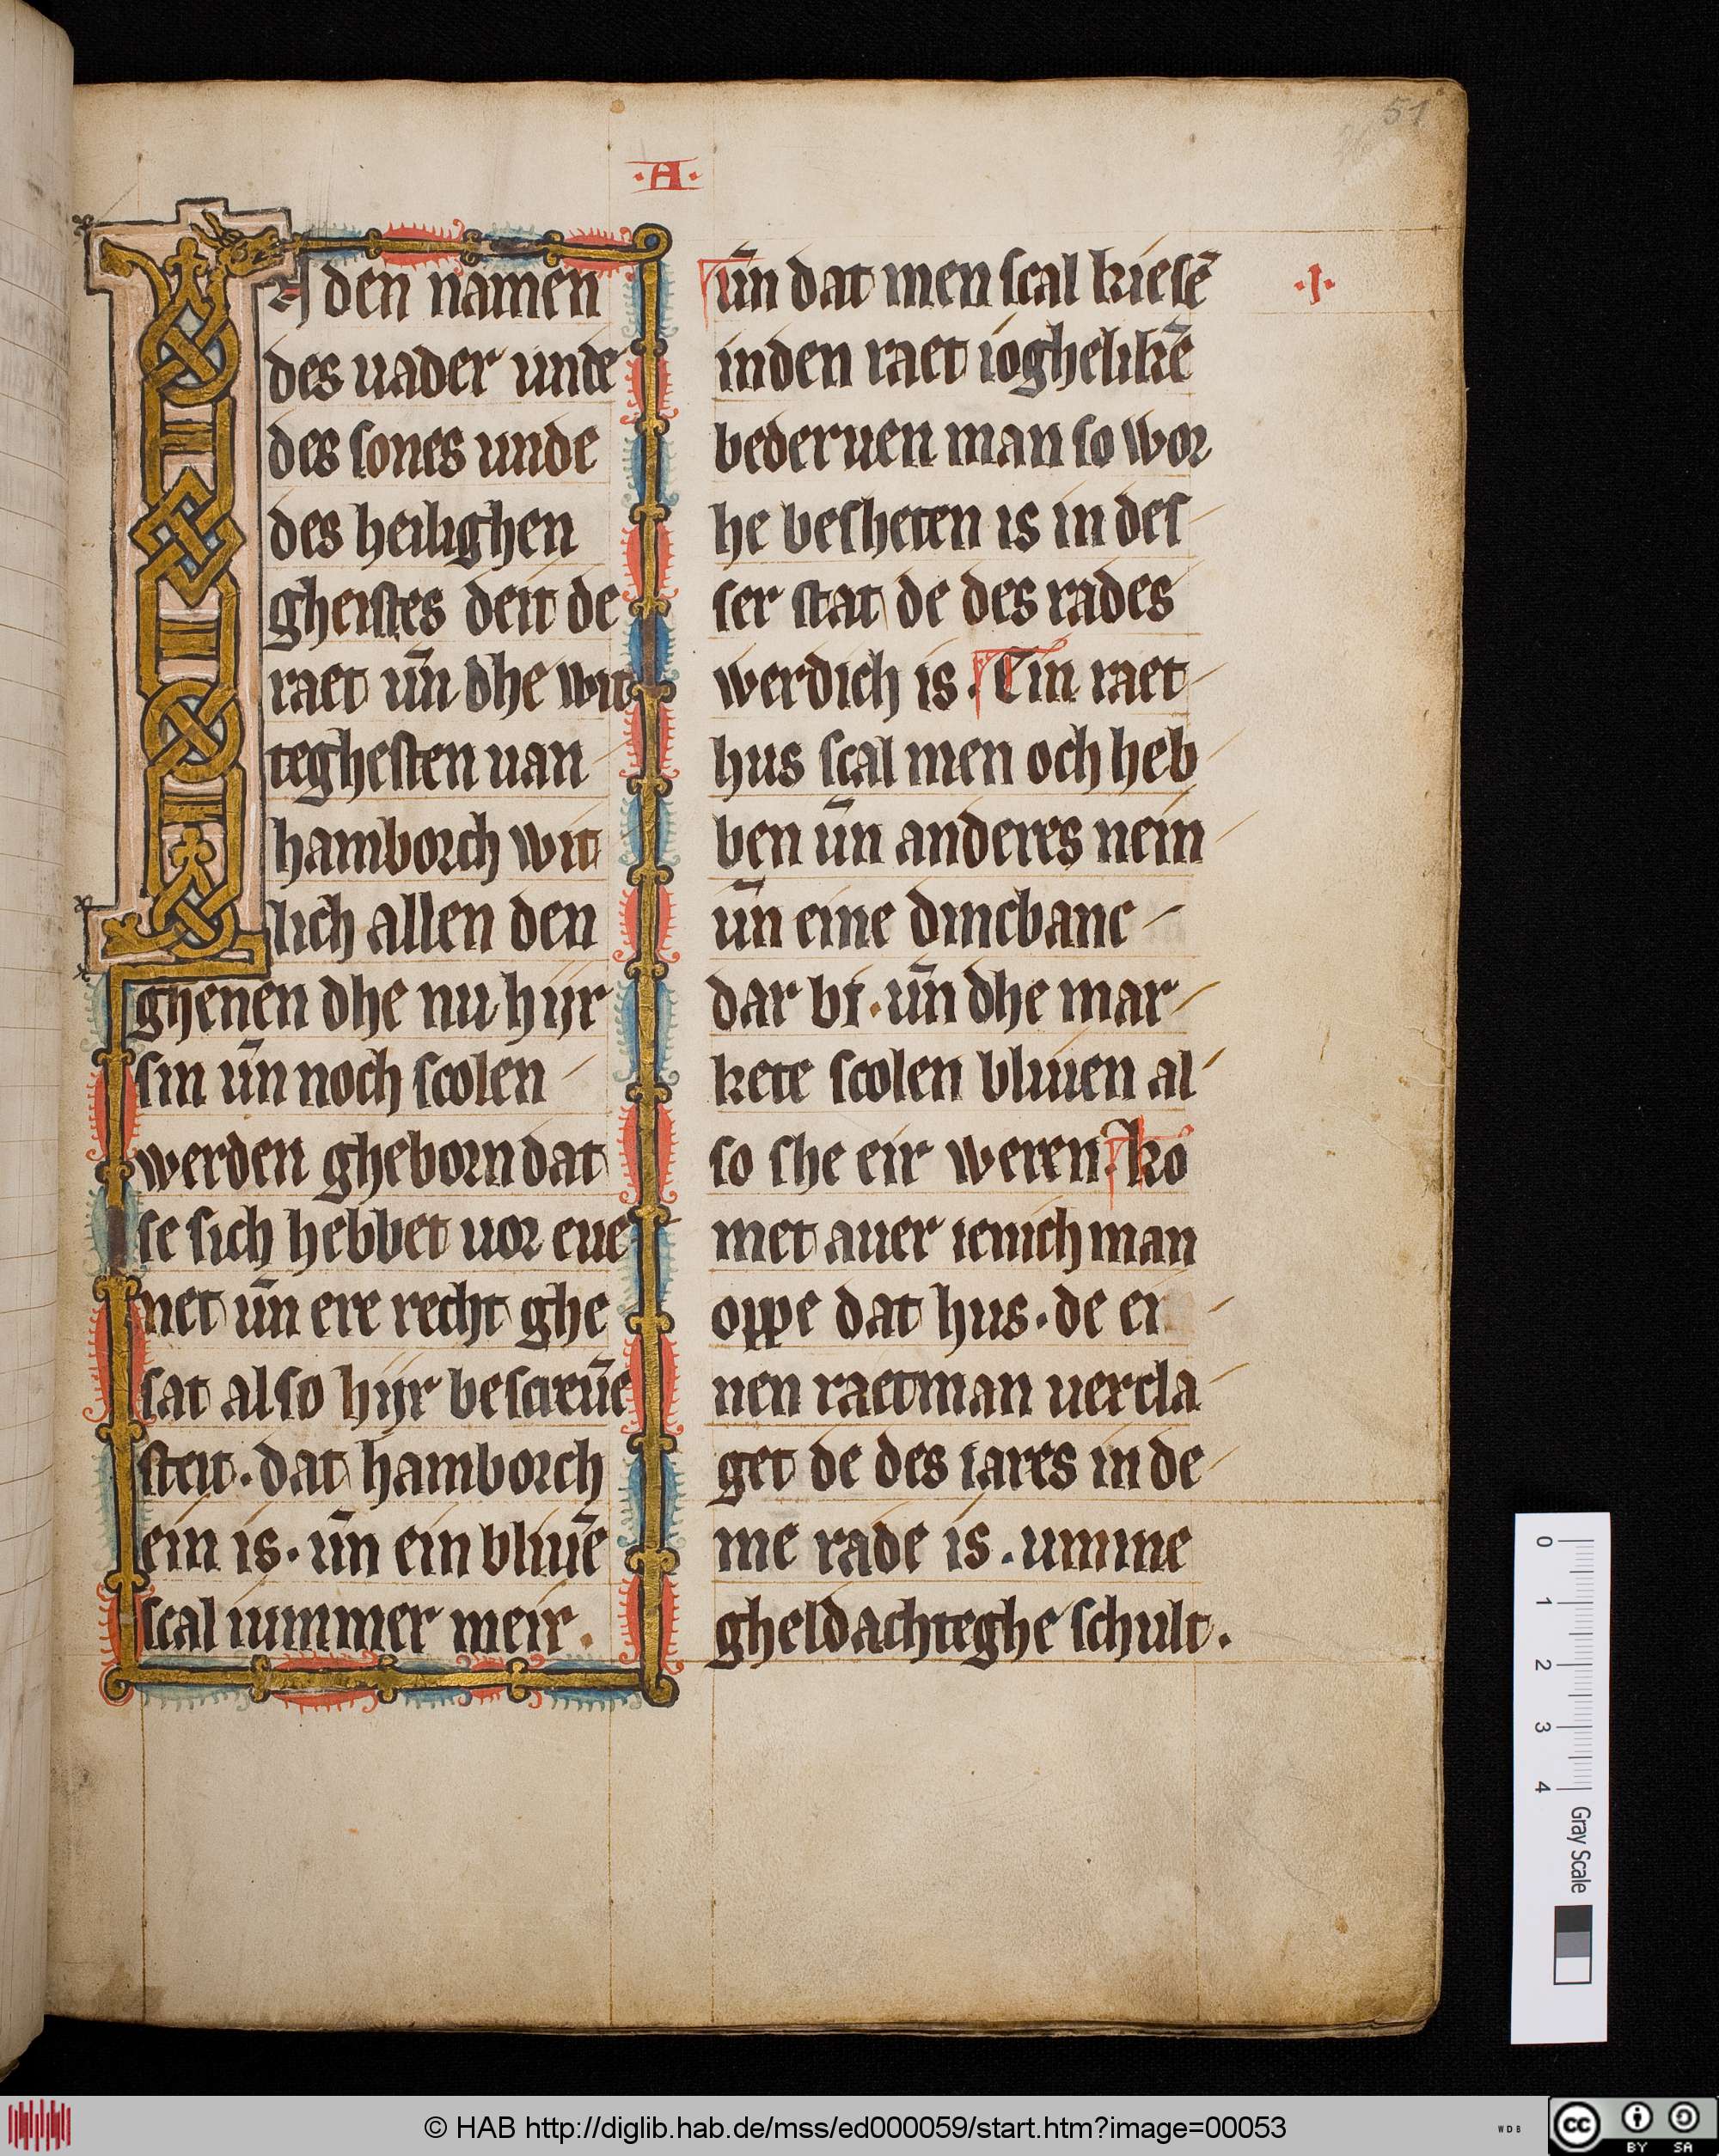 51
·A·
IN den namen
des uader unde
des sones unde
des heilighen
gheistes deit de
raet un̄ dhe wit
teghesten uan
hamborch wit
lich allen den
ghenen dhe nu hijr
sin un̄ noch scolen
werden gheborn dat
se sich hebbet uor eue
net un̄ ere recht ghe
sat also hijr bescreuē
steit. dat hamborch
ein is. un̄ ein bliuē
scal iummer meir.
un̄ dat men scal kiesē
inden raet ioghelikē
bederuen man so wor
he besheten is in des
ser stat de des rades
werdich is. Ein raet
hus scal men och heb
ben un̄ anderes nein
un̄ eine dincbanc
dar bi. un̄ dhe mar
kete scolen bliuen al
so she eir weren. ko
met auer ienich man
oppe dat hus. de ei
nen raetman uercla
get de des iares in de
me rade is. umme
gheldachteghe schult.
·I·
0 1 2 3 4 Gray Scale
© HAB http://diglib.hab.de/mss/ed000059/start.htm?image=00053
WDB
cc BY SA